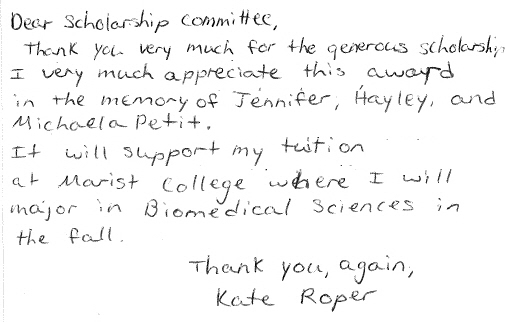 Dear Scholarship Committee,
Thank you very much for the generous scholarship
I very much appreciate this award
in the memory of Jennifer, Hayley, and
Michaela Petit.
It will support my tuition
at Marist College where I will
major in Biomedical Sciences in
the fall.
Thank you, again,
Kate Roper